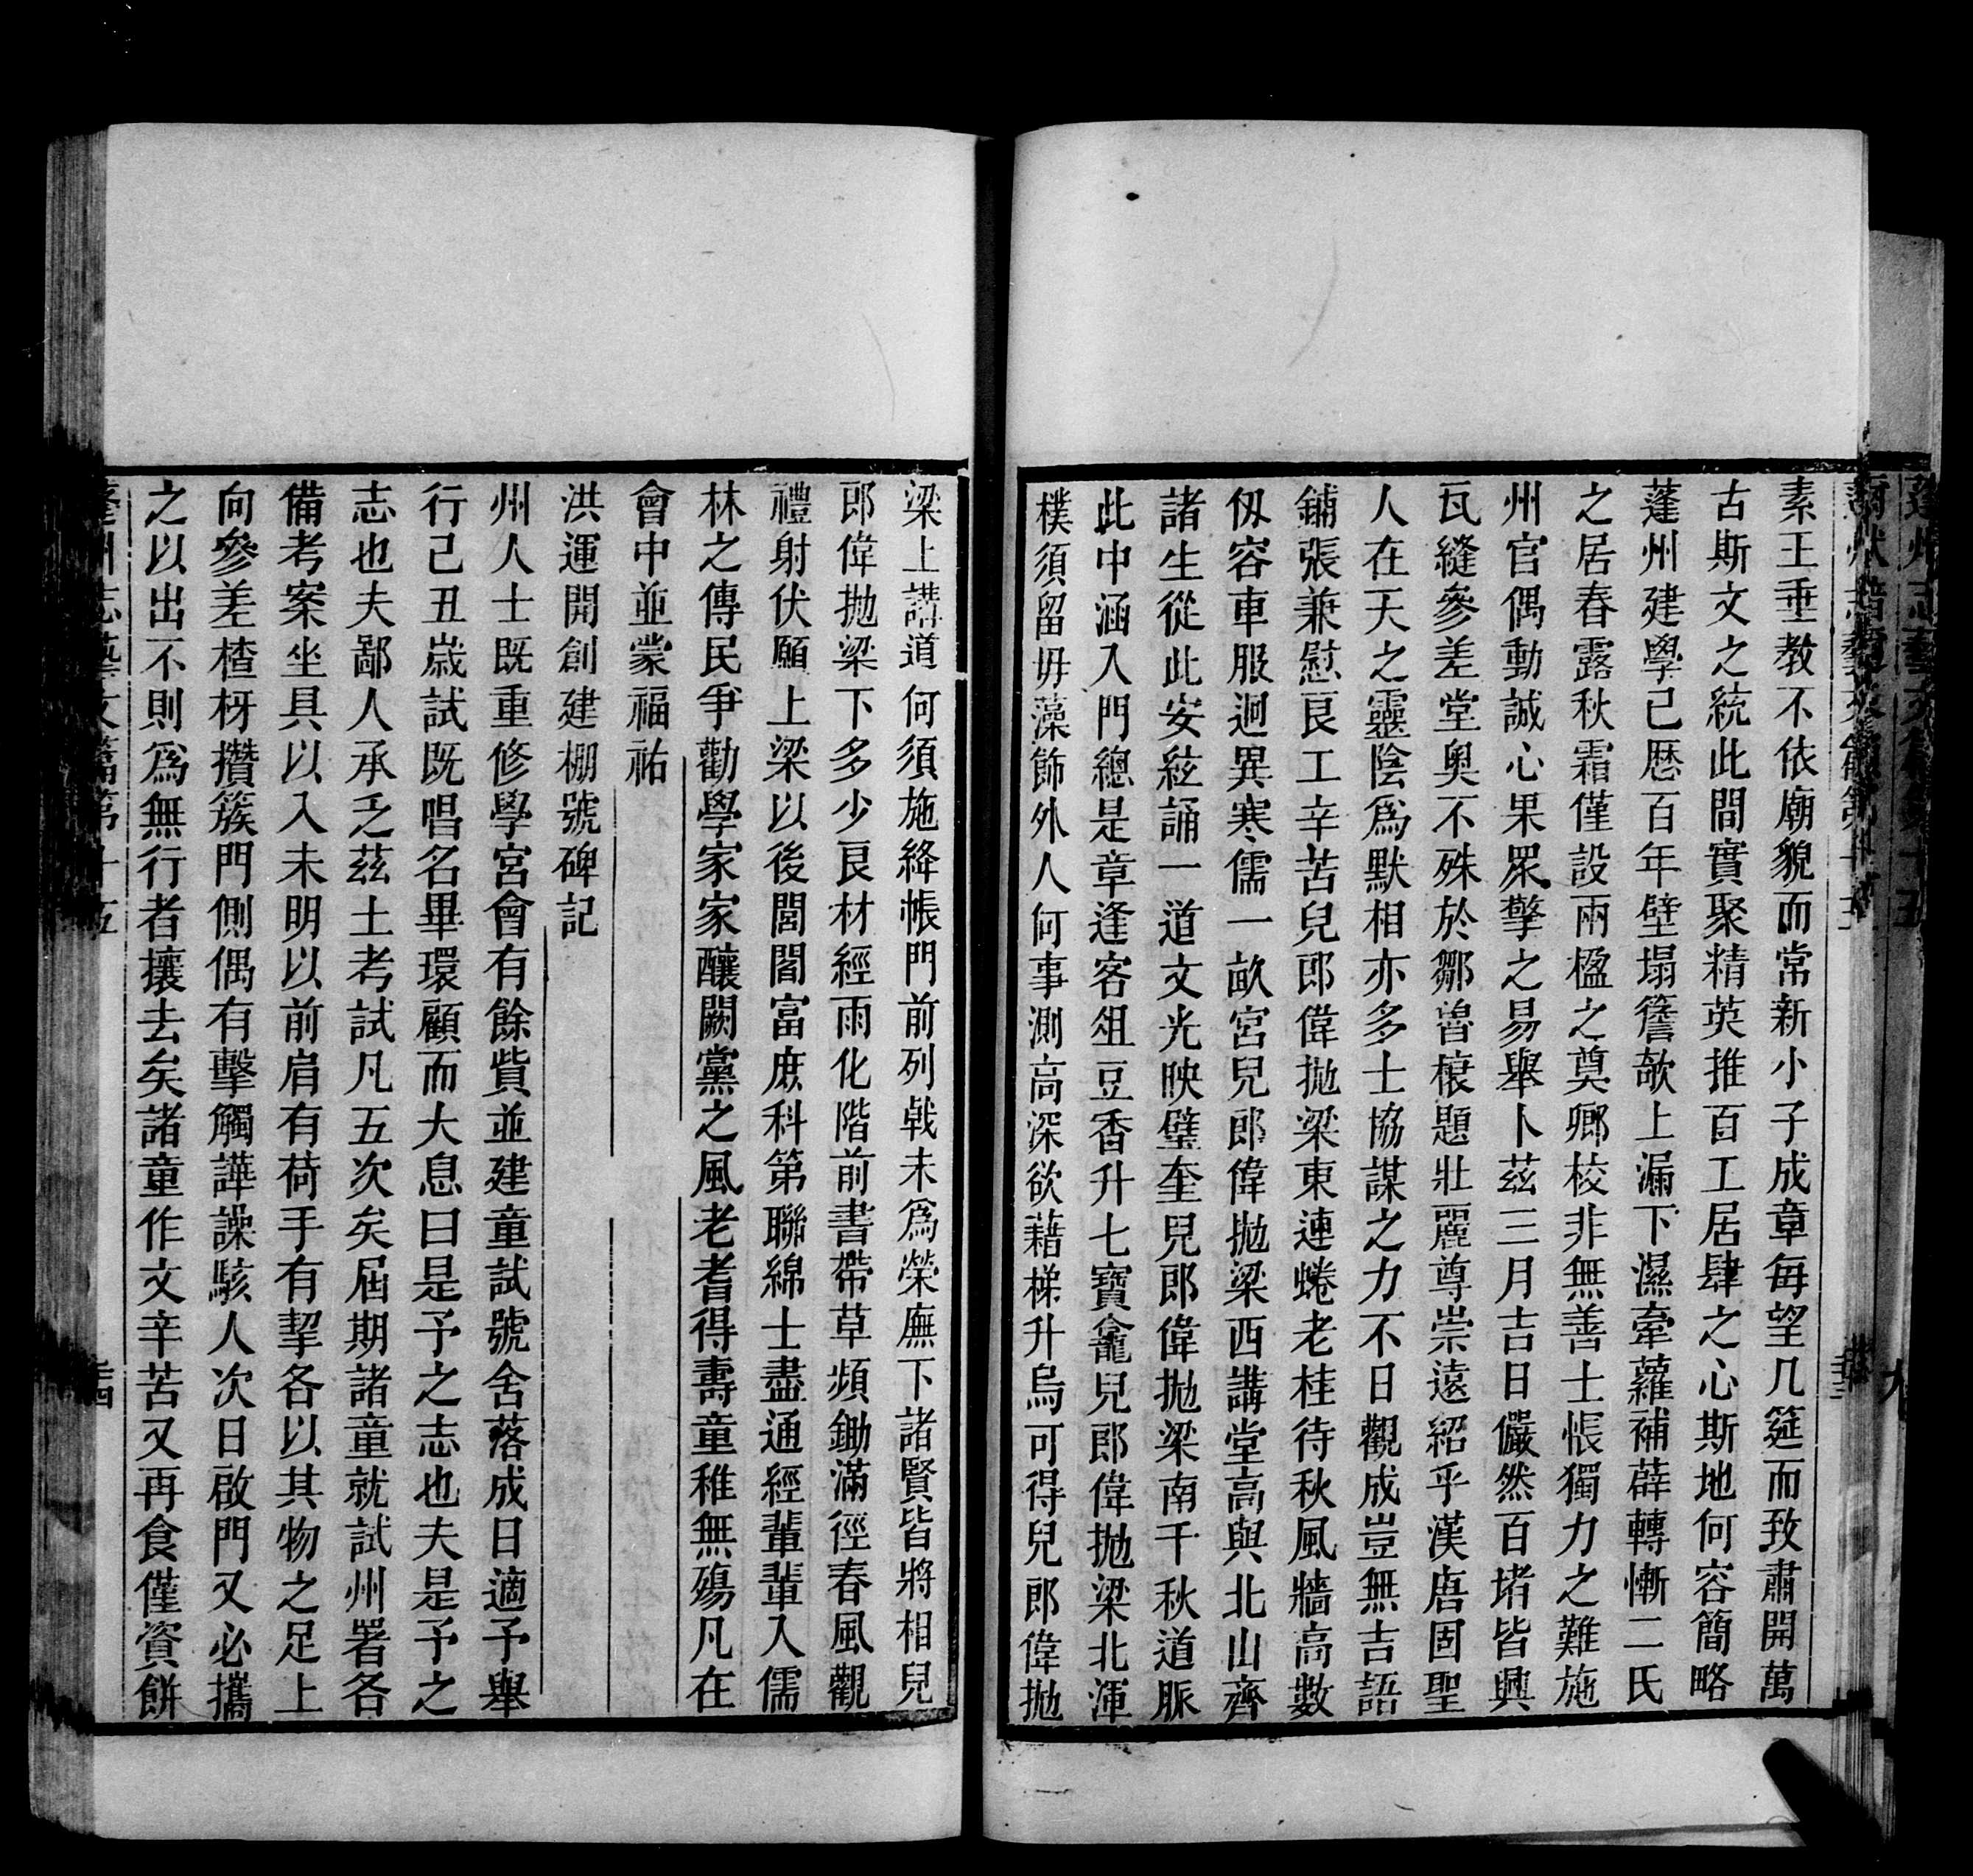 素王垂教不依廟貌而常新小子成章每望几筵而致肅開萬
古斯文之統此間實聚精英推百工居肆之心斯地何容簡略
蓬州建學己歴百年壁塌簷欹上漏下濕牽蘿補薜轉慚二氏
之居春露秋霜僅設兩楹之奠鄉校非無善士悵獨力之難施
州官偶動誠心果眾擎之易舉卜茲三月吉日儼然百堵皆興
瓦縫參差堂奧不殊於鄒魯榱題壯麗尊崇遠紹乎漢唐固聖
人在天之靈陰爲默相亦多士協謀之力不日觀成豈無吉語
鋪張兼慰良工辛苦兒郎偉拋梁東連蜷老桂待秋風牆高數
仭容車服迥異寒儒一畝宮兒郎偉拋梁西講堂高與北山齊
諸生從此安絃誦一道文光映璧奎兒郎偉拋梁南千秋道脈
此中涵入門總是章逢客俎豆香升七寶龕兒郎偉拋梁北渾
樸須留毋藻飾外人何事測高深欲藉梯升烏可得兒郎偉拋
梁上講道何須施絳帳門前列戟未爲榮廡下諸賢皆將相兒
郎偉拋梁下多少良材經雨化階前書帶草頻鋤滿徑春風觀
禮射伏願上梁以後閭閻富庶科第聯綿士盡通經輩輩入儒
林之傳民爭勸學家家釀闕黨之風老耆得壽童稚無殤凡在
會中並蒙福祐
洪運開創建棚號碑記
州人士既重修學宮會有餘貲並建童試號舍落成日適予舉
行己丑歲試既唱名畢環顧而大息曰是予之志也夫是予之
志也夫鄙人承乏茲土考試凡五次矣屆期諸童就試州署各
備考案坐具以入未明以前肩有荷手有挈各以其物之足上
向參差楂枒攢簇門側偶有擊觸譁譟駭人次日啟門又必攜
之以出不則爲無行者攘去矣諸童作文辛苦又再食僅資餅
蓬州志藝文篇第十五